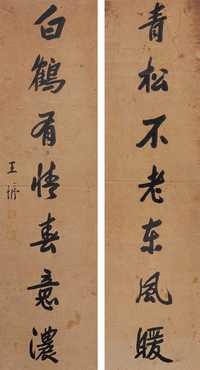 青松不老东風暖
白鶴有情春意濃